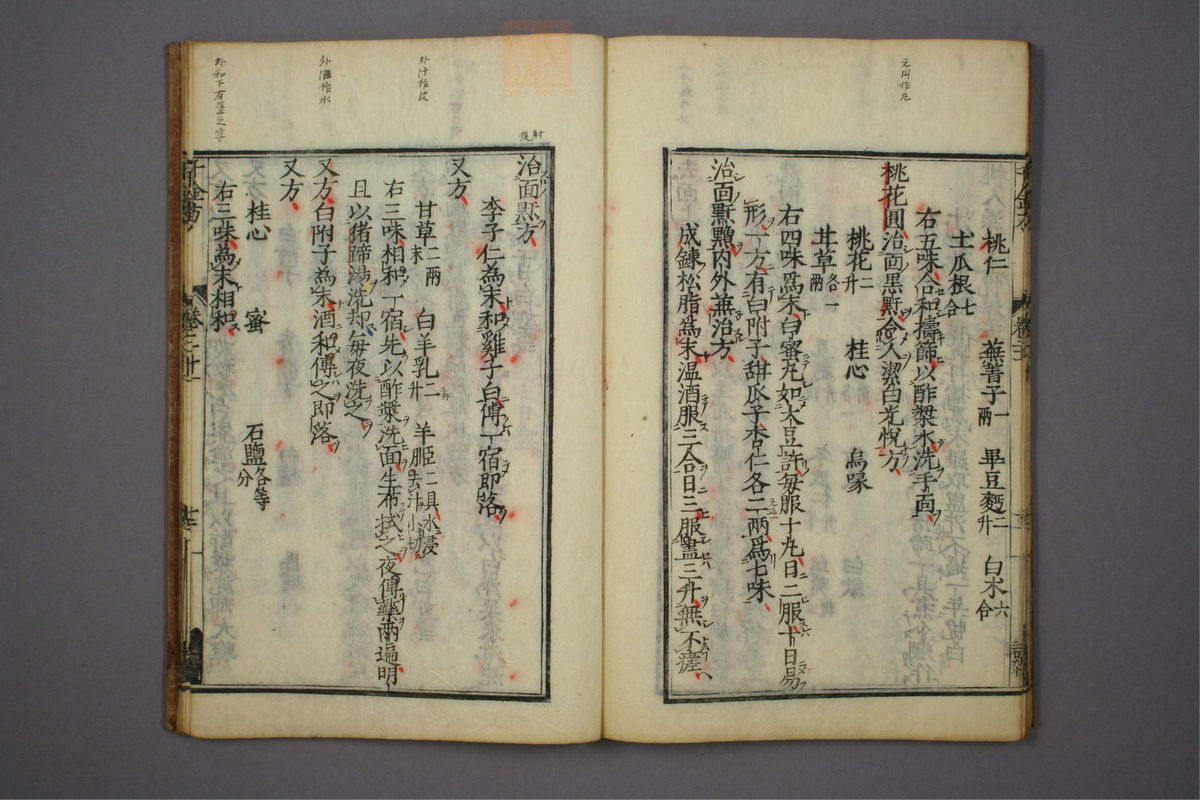 元円作丸
桃仁 蕪菁子一兩 畢豆麪二升 白朮六合
土瓜根七合
右五味合和擣篩以酢漿水洗手面
桃花圓治面黒䵟令人潔白光悅方
桃花二升 桂心 烏喙
甘草各一兩
右四味爲末白蜜丸如大豆許每服十丸日二服十日易
形一方有白附子甜瓜子杏仁各二兩爲七味
治面䵟䵳内外兼治方
成鍊松脂爲末温酒服三合日三服盡三升無不瘥
肘後
治面䵟方
李子仁為末和雞子白傅一宿即落
外汁作皮
又方
甘草二兩末 白羊乳二升 羊胵二具水浸去汁小切
右三味相和一宿先以酢漿洗面生布拭之夜傅藥兩遍明
且以猪蹄湯洗却每夜洗之
外酒作水
又方白附子為末酒和傅之即落
又方
桂心 蜜 石鹽各等分
外和下有塗之字
右三味為末相和
千金方
卷二十一